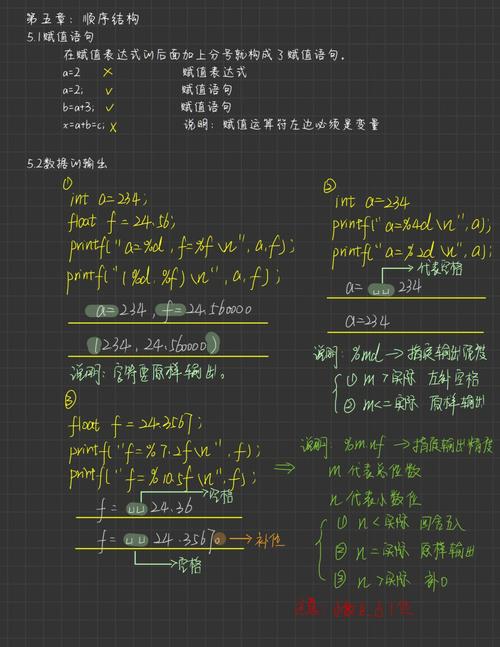 第五章：顺序结构
5.1赋值语句
在赋值表达式训后面加上分号就构成了赋值语句。
a=2 × 赋值表达式
a=2; ✓ 赋值语句
b=a+3; ✓ 赋值语句
x=a+b=c; × 说明：赋值运算符左边必须是变量
5.2数据训输出
①
int a=234;
float f=24.56;
printf("a=%d,f=%f\n",a,f);
printf("(%d,%f)\n",a,f);
a=234,f=24.560000
(234,24.560000)
说明：字符要原样输出。
②
int a=234
printf("a=%4d\n",a);
printf("a=%2d\n",a);
代表空格
a=␣␣234
a=234
说明：%md→指定输出宽度
① m>实际 左补空格
② m<=实际 原样输出
③
float f=24.3567;
printf("f=%7.2f\n",f);
printf("f=%10.5f\n",f);
空格
f=␣␣24.36
f=␣␣24.35670 →补位
空格
说明：%m.nf→指定输出精度
m 代表总位数
n 代表小数位
① n<实际 四舍五入
② n=实际 原样输出
③ n>实际 补0
注意：小数点占一位